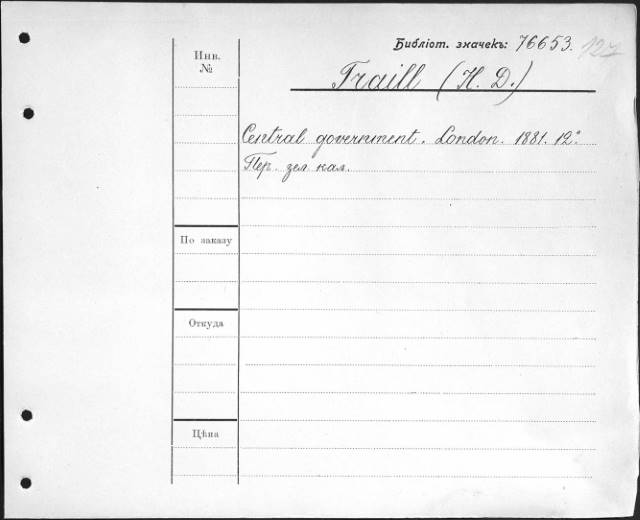 Библіот. значекъ: 76653. 127
Инв.
№
Traill (H. D.)
Central government. London. 1881. 12°
Пер. зел. кал.
По заказу
Откуда
Цѣна